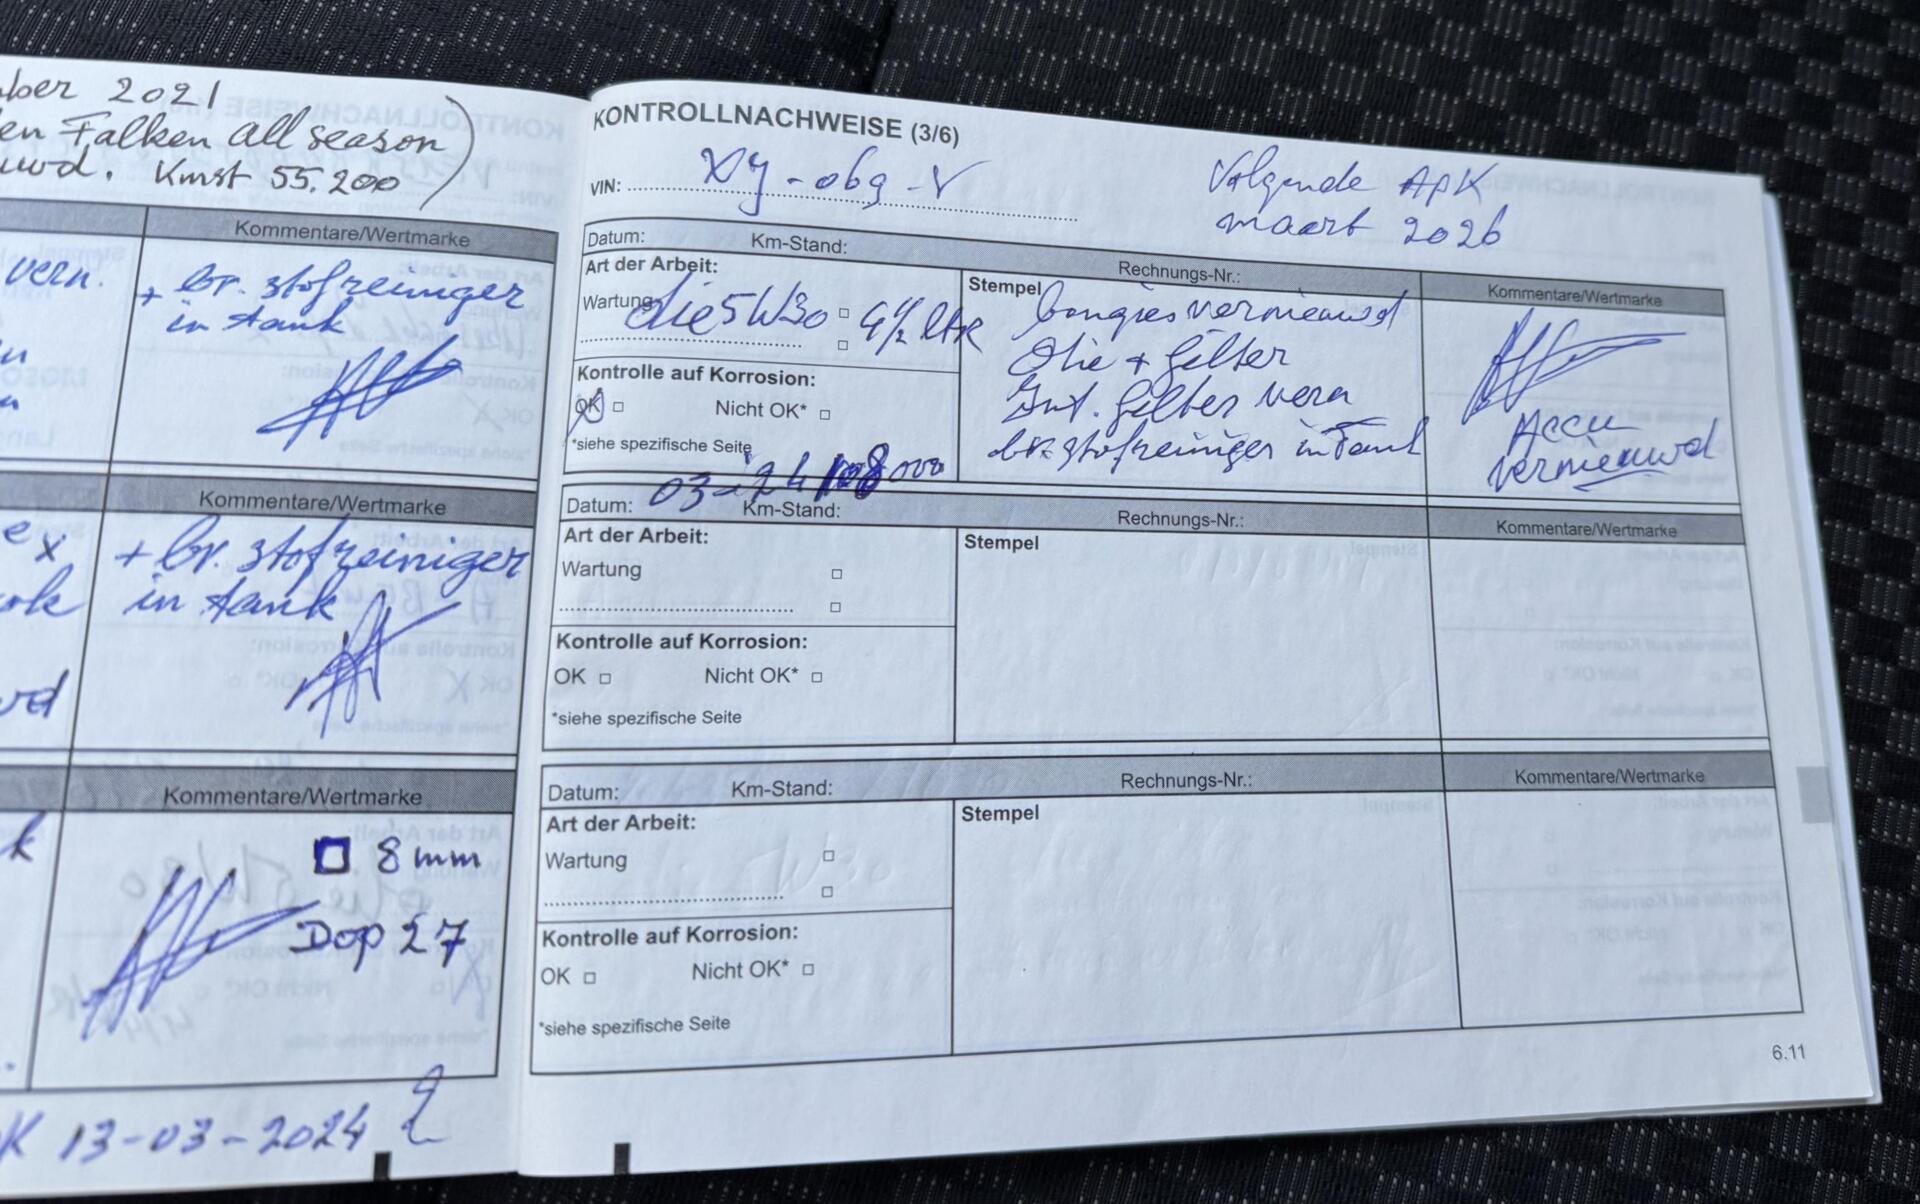 ber 2021
en Falken all season
uwd. Kmst 55.200
Kommentare/Wertmarke
vern.
+ br. stofreiniger
in tank
Kommentare/Wertmarke
ex
+ br. stofreiniger
in tank
ok
wd
Kommentare/Wertmarke
k
8 mm
Dop 27
K 13-03-2024
KONTROLLNACHWEISE (3/6)
VIN:
Volgende APK
maart 2026
Datum: Km-Stand: Rechnungs-Nr.:
Kommentare/Wertmarke
Art der Arbeit:
Wartung olie 5W30 4½ ltr
Kontrolle auf Korrosion:
OK Nicht OK*
*siehe spezifische Seite
Stempel bougies vernieuwd
Olie + filter
Int. filter vern
br. stofreiniger in Tank
Accu
vernieuwd
03-24 108000
Datum: Km-Stand: Rechnungs-Nr.:
Kommentare/Wertmarke
Art der Arbeit:
Wartung
Kontrolle auf Korrosion:
OK Nicht OK*
*siehe spezifische Seite
Stempel
Datum: Km-Stand: Rechnungs-Nr.:
Kommentare/Wertmarke
Art der Arbeit:
Wartung
Kontrolle auf Korrosion:
OK Nicht OK*
*siehe spezifische Seite
Stempel
6.11